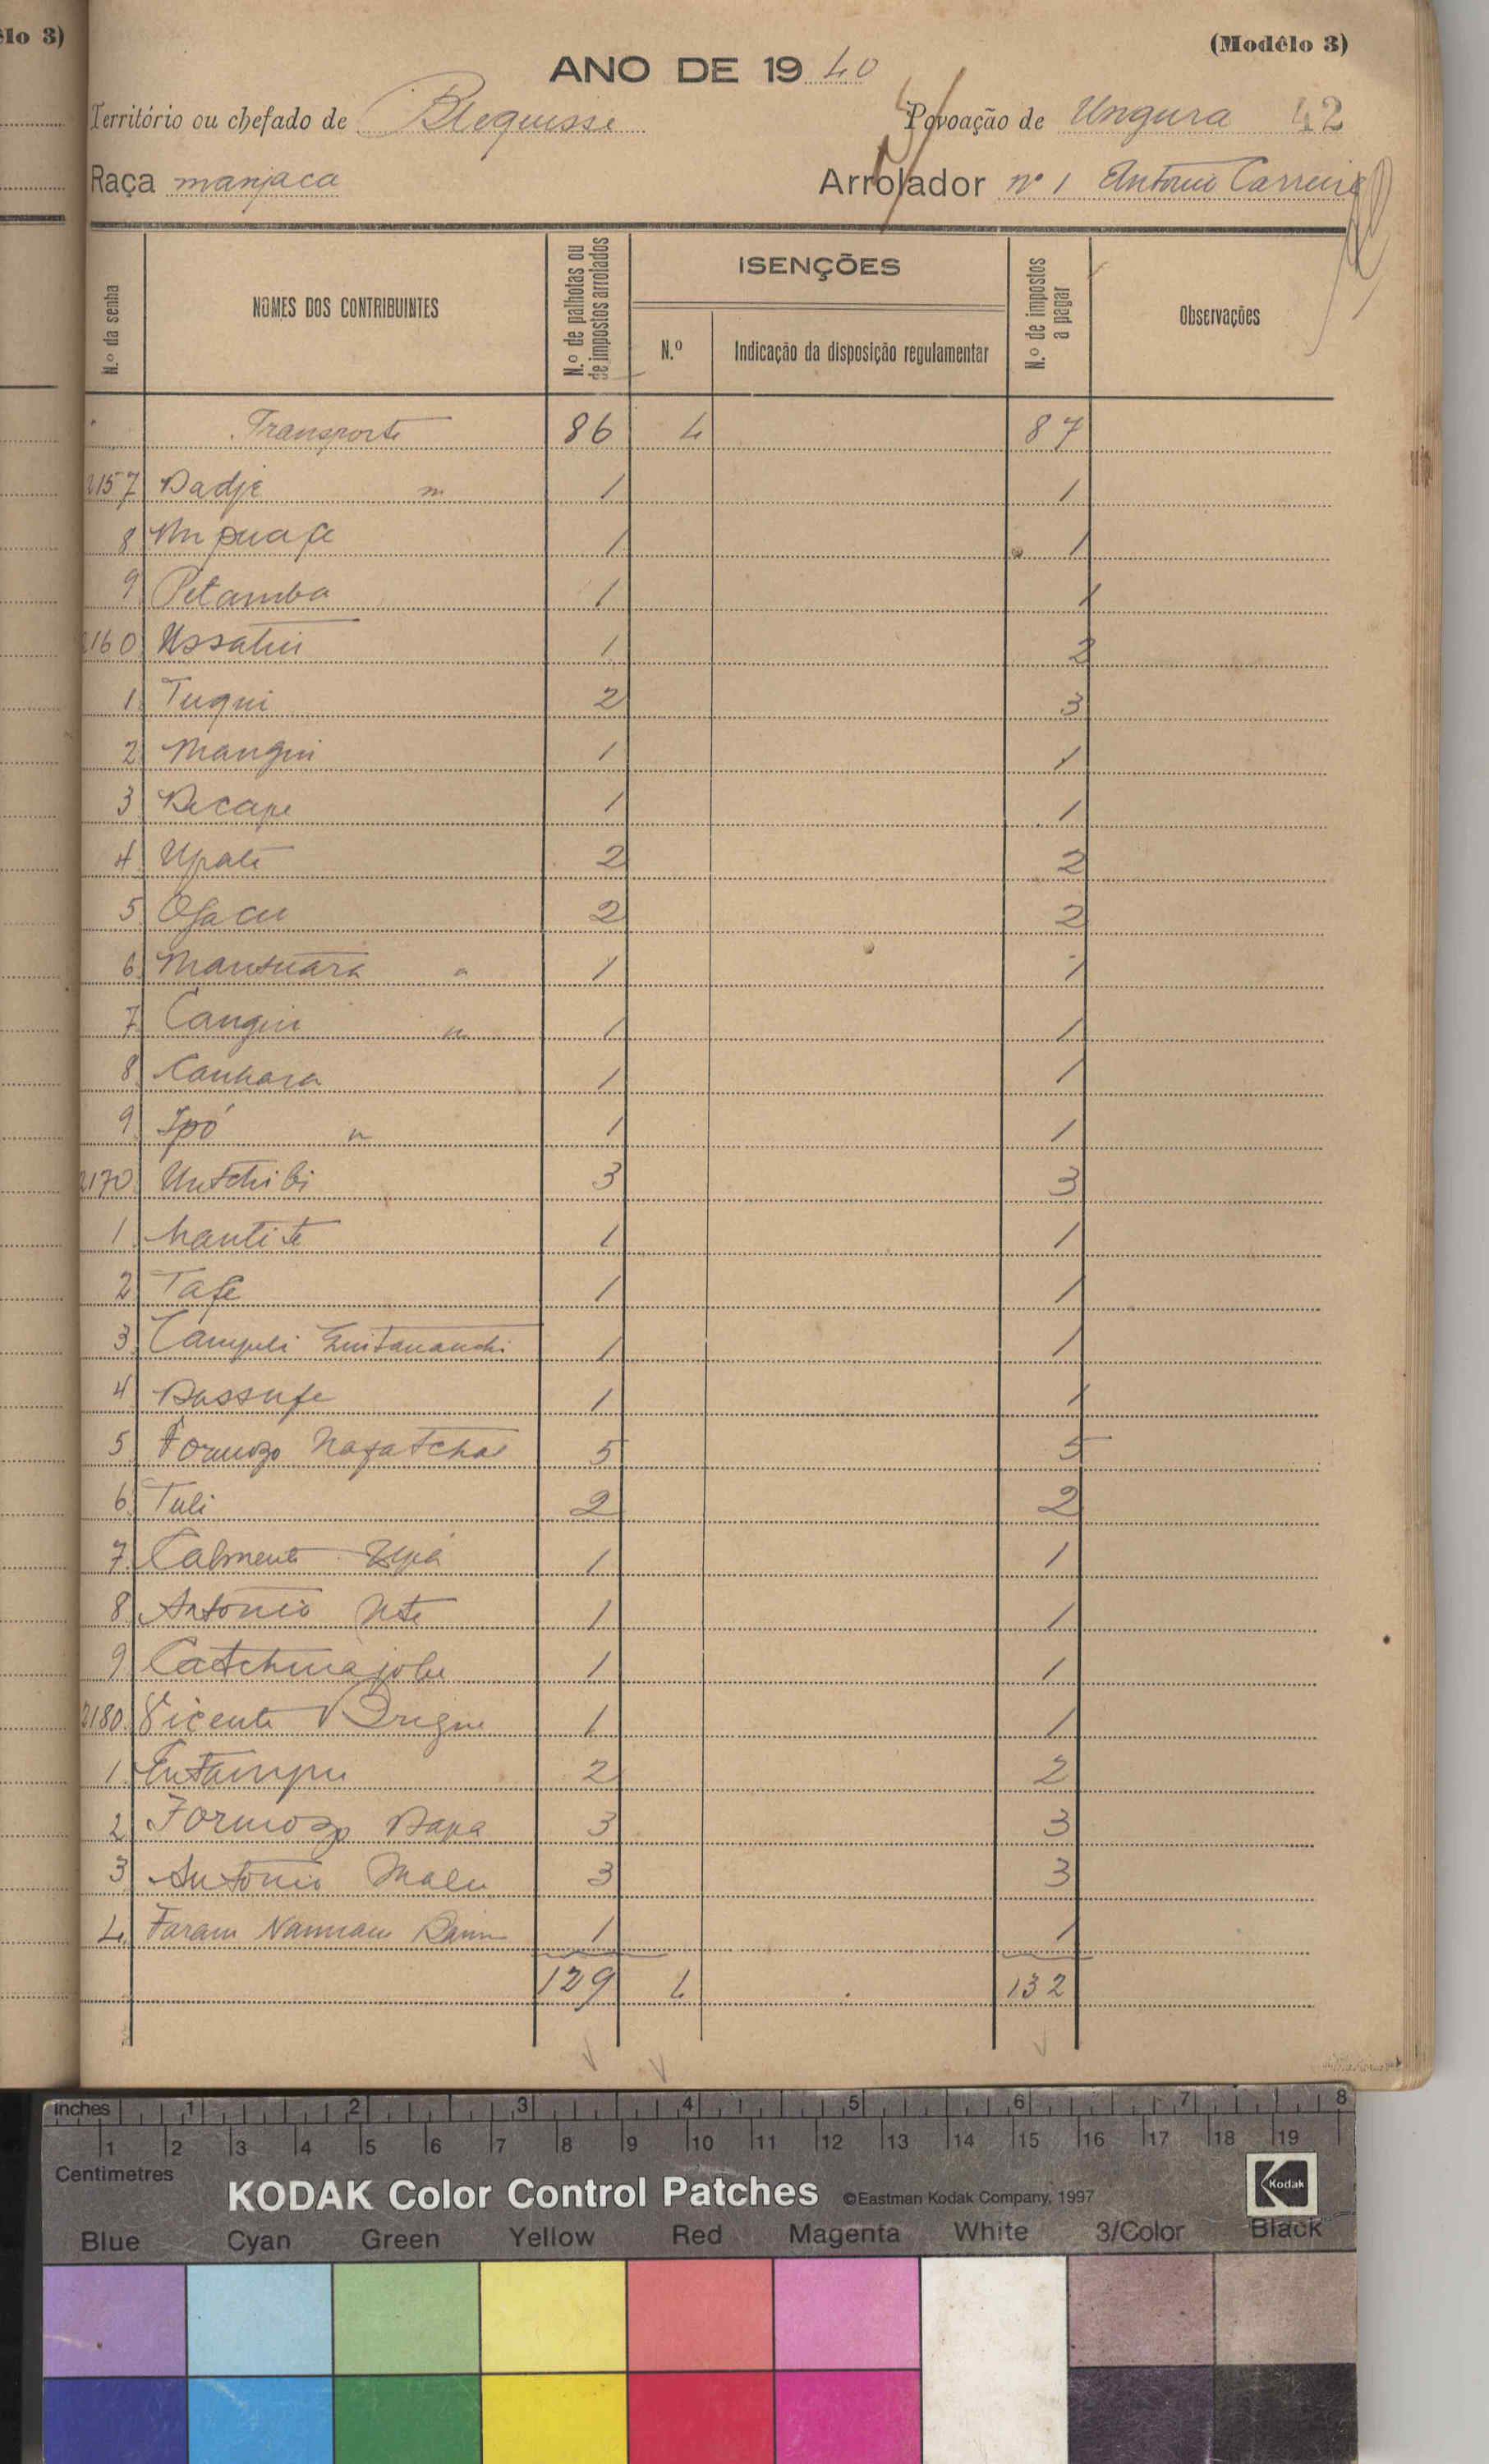 êlo 3)
(Modêlo 3)
ANO DE 19 40
Território ou chefado de Blequisse Povoação de Ungura 42
Raça manjaca Arrolador nº 1 Antonio Carreira
N.º da senha
NOMES DOS CONTRIBUINTES
N.º de palhotas ou de impostos arrolados
ISENÇÕES
N.º
Indicação da disposição regulamentar
N.º de impostos a pagar
Observações
Transporte 86 4 87
2157 Dadje 1 1
8 1 1
9 Petamba 1 1
2160 Ussatin 1 2
1 Tuqui 2 3
2 Mangui 1 1
3 Decape 1 1
4 Upate 2 2
5 Ofacu 2 2
6 Mantuara 1 1
7 Cangui 1 1
8 Canhara 1 1
9 Ipó 1 1
2170 Untchibi 3 3
1 Nantite 1 1
2 Tafe 1 1
3 Campeli 1 1
4 Dussufe 1 1
5 Formozo 5 5
6 Tuli 2 2
7 1 1
8 Antonio Nte 1 1
9 Catchuiajolu 1 1
2180 Vicente Brigue 1 1
1 Entampu 2 2
2 Formozo Dapa 3 3
3 Antonio Malu 3 3
4 Faram 1 1
129 4 132
inches 1 2 3 4 5 6 7 8
1 2 3 4 5 6 7 8 9 10 11 12 13 14 15 16 17 18 19
Centimetres
KODAK Color Control Patches ©Eastman Kodak Company, 1997 Kodak
Blue Cyan Green Yellow Red Magenta White 3/Color Black